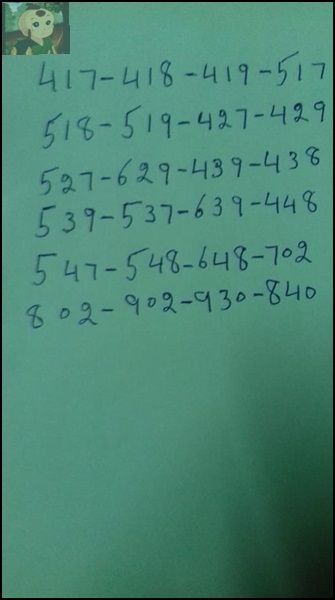 417-418-419-517
518-519-427-429
527-629-439-438
539-537-639-448
547-548-648-702
802-902-930-840